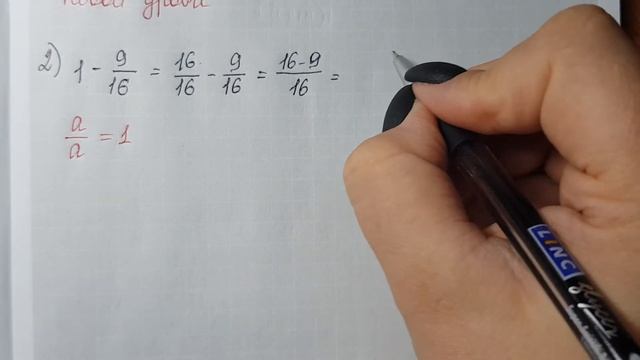 2) 1 - 9/16 = 16/16 - 9/16 = 16-9/16 =
a/a = 1
LINC